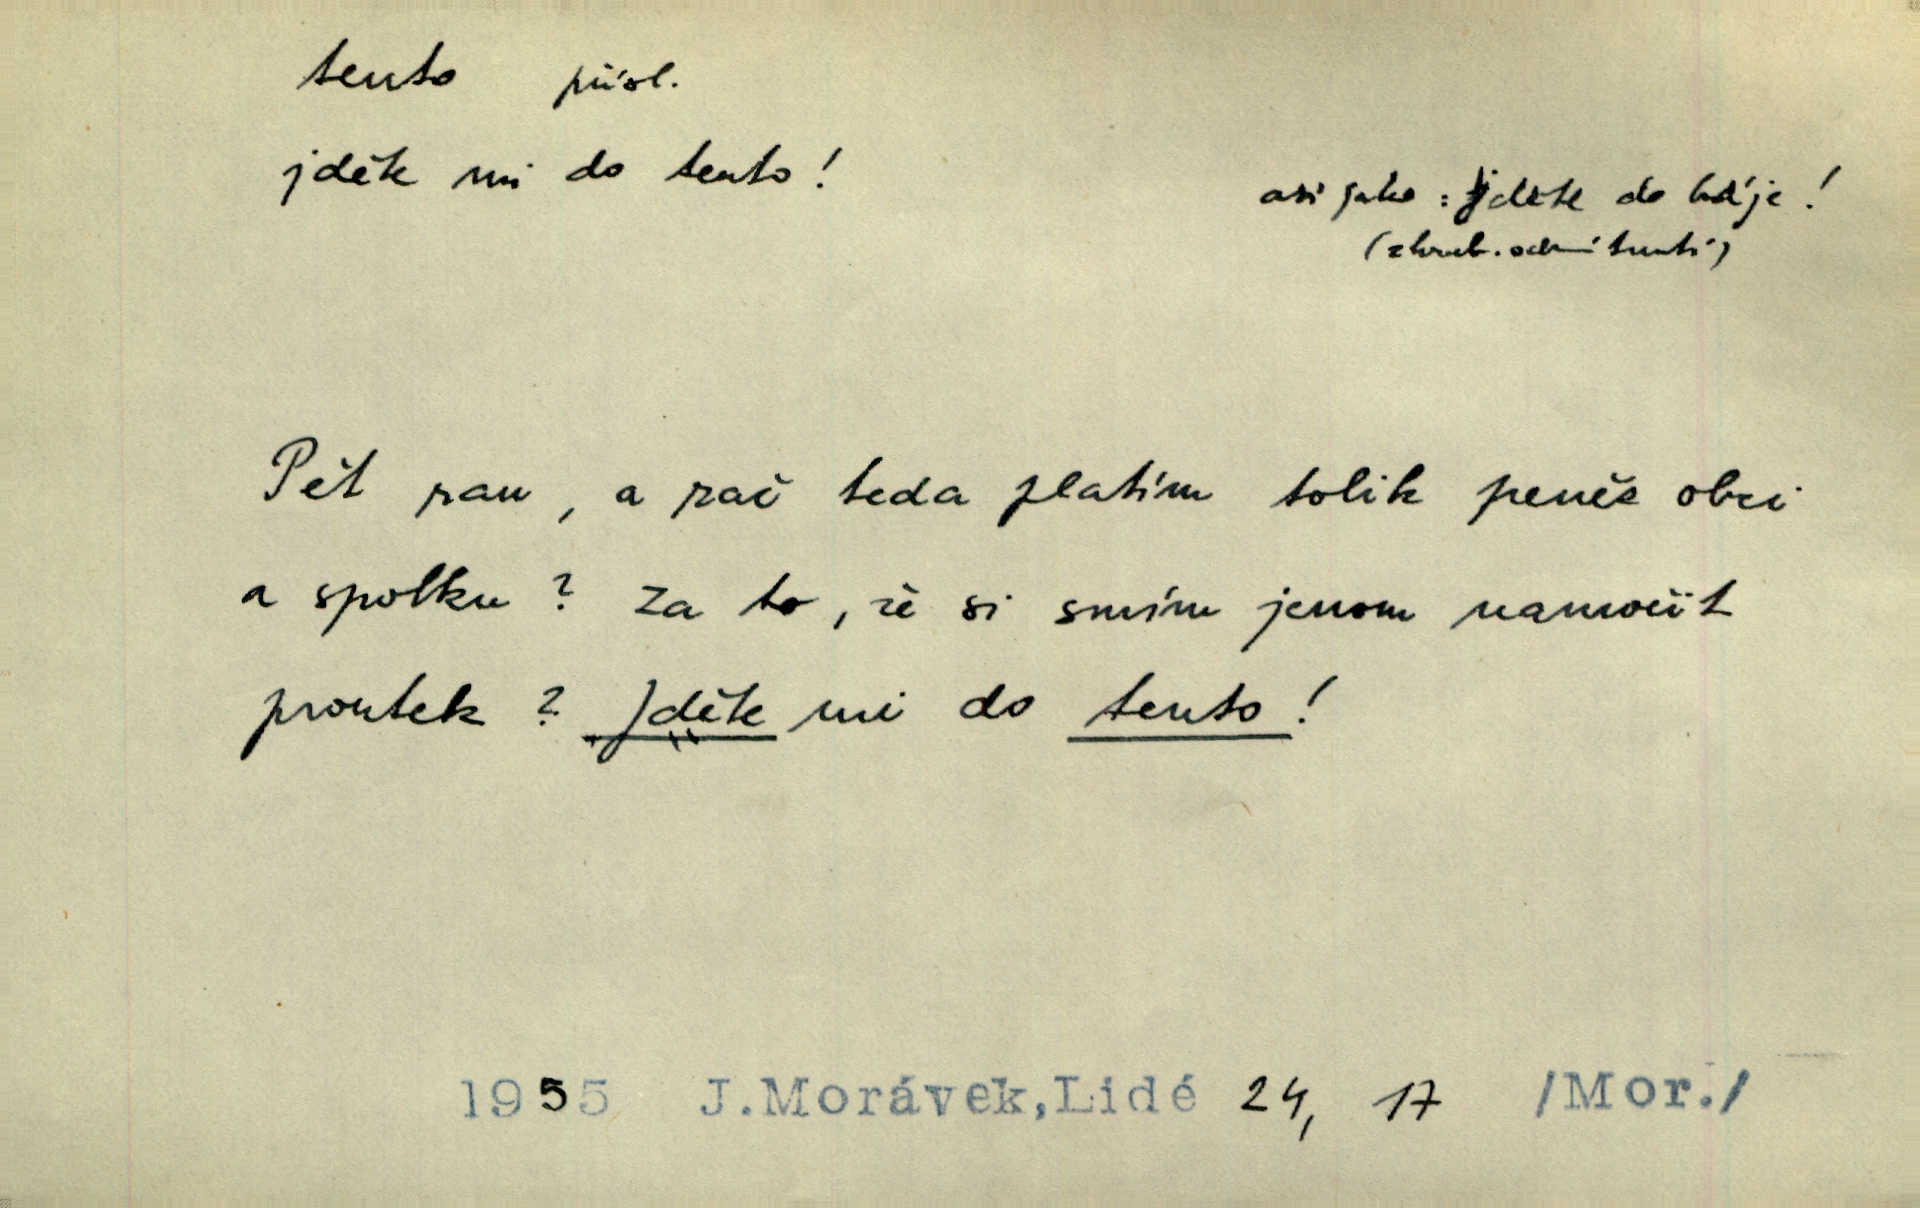 tento přísl.
jděte mi do tento!
asi jako: jděte do háje!
(zhrub. odmítnutí)
Pět ran, a zač teda platím tolik peněz obci
a spolku? Za to, že si smím jenom namočit
proutek? Jděte mi do tento!
1955 J.Morávek,Lidé 24, 17 /Mor./